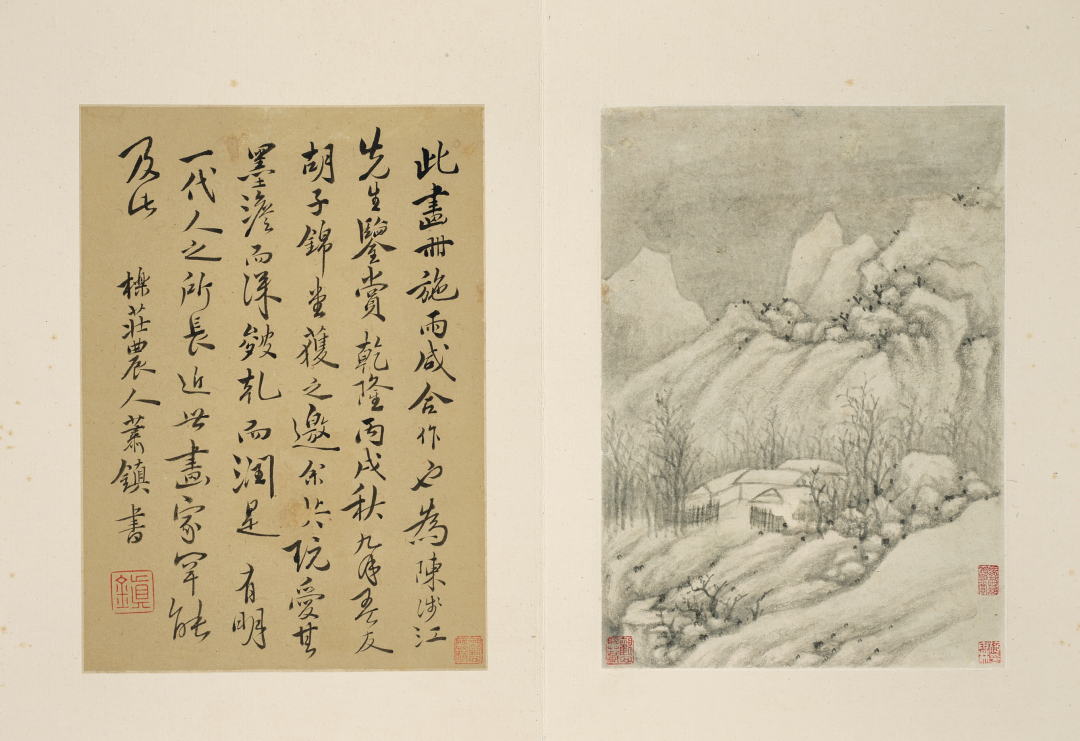 此畫冊施雨咸合作也為陳涉江
先生鑒賞乾隆丙戌秋九月吾友
胡子錦堂獲之邀余共玩愛其
墨澹而深皴乾而潤是有明
一代人之所長近世畫家罕能
及此
櫟莊農人蕭鎮書
鎮